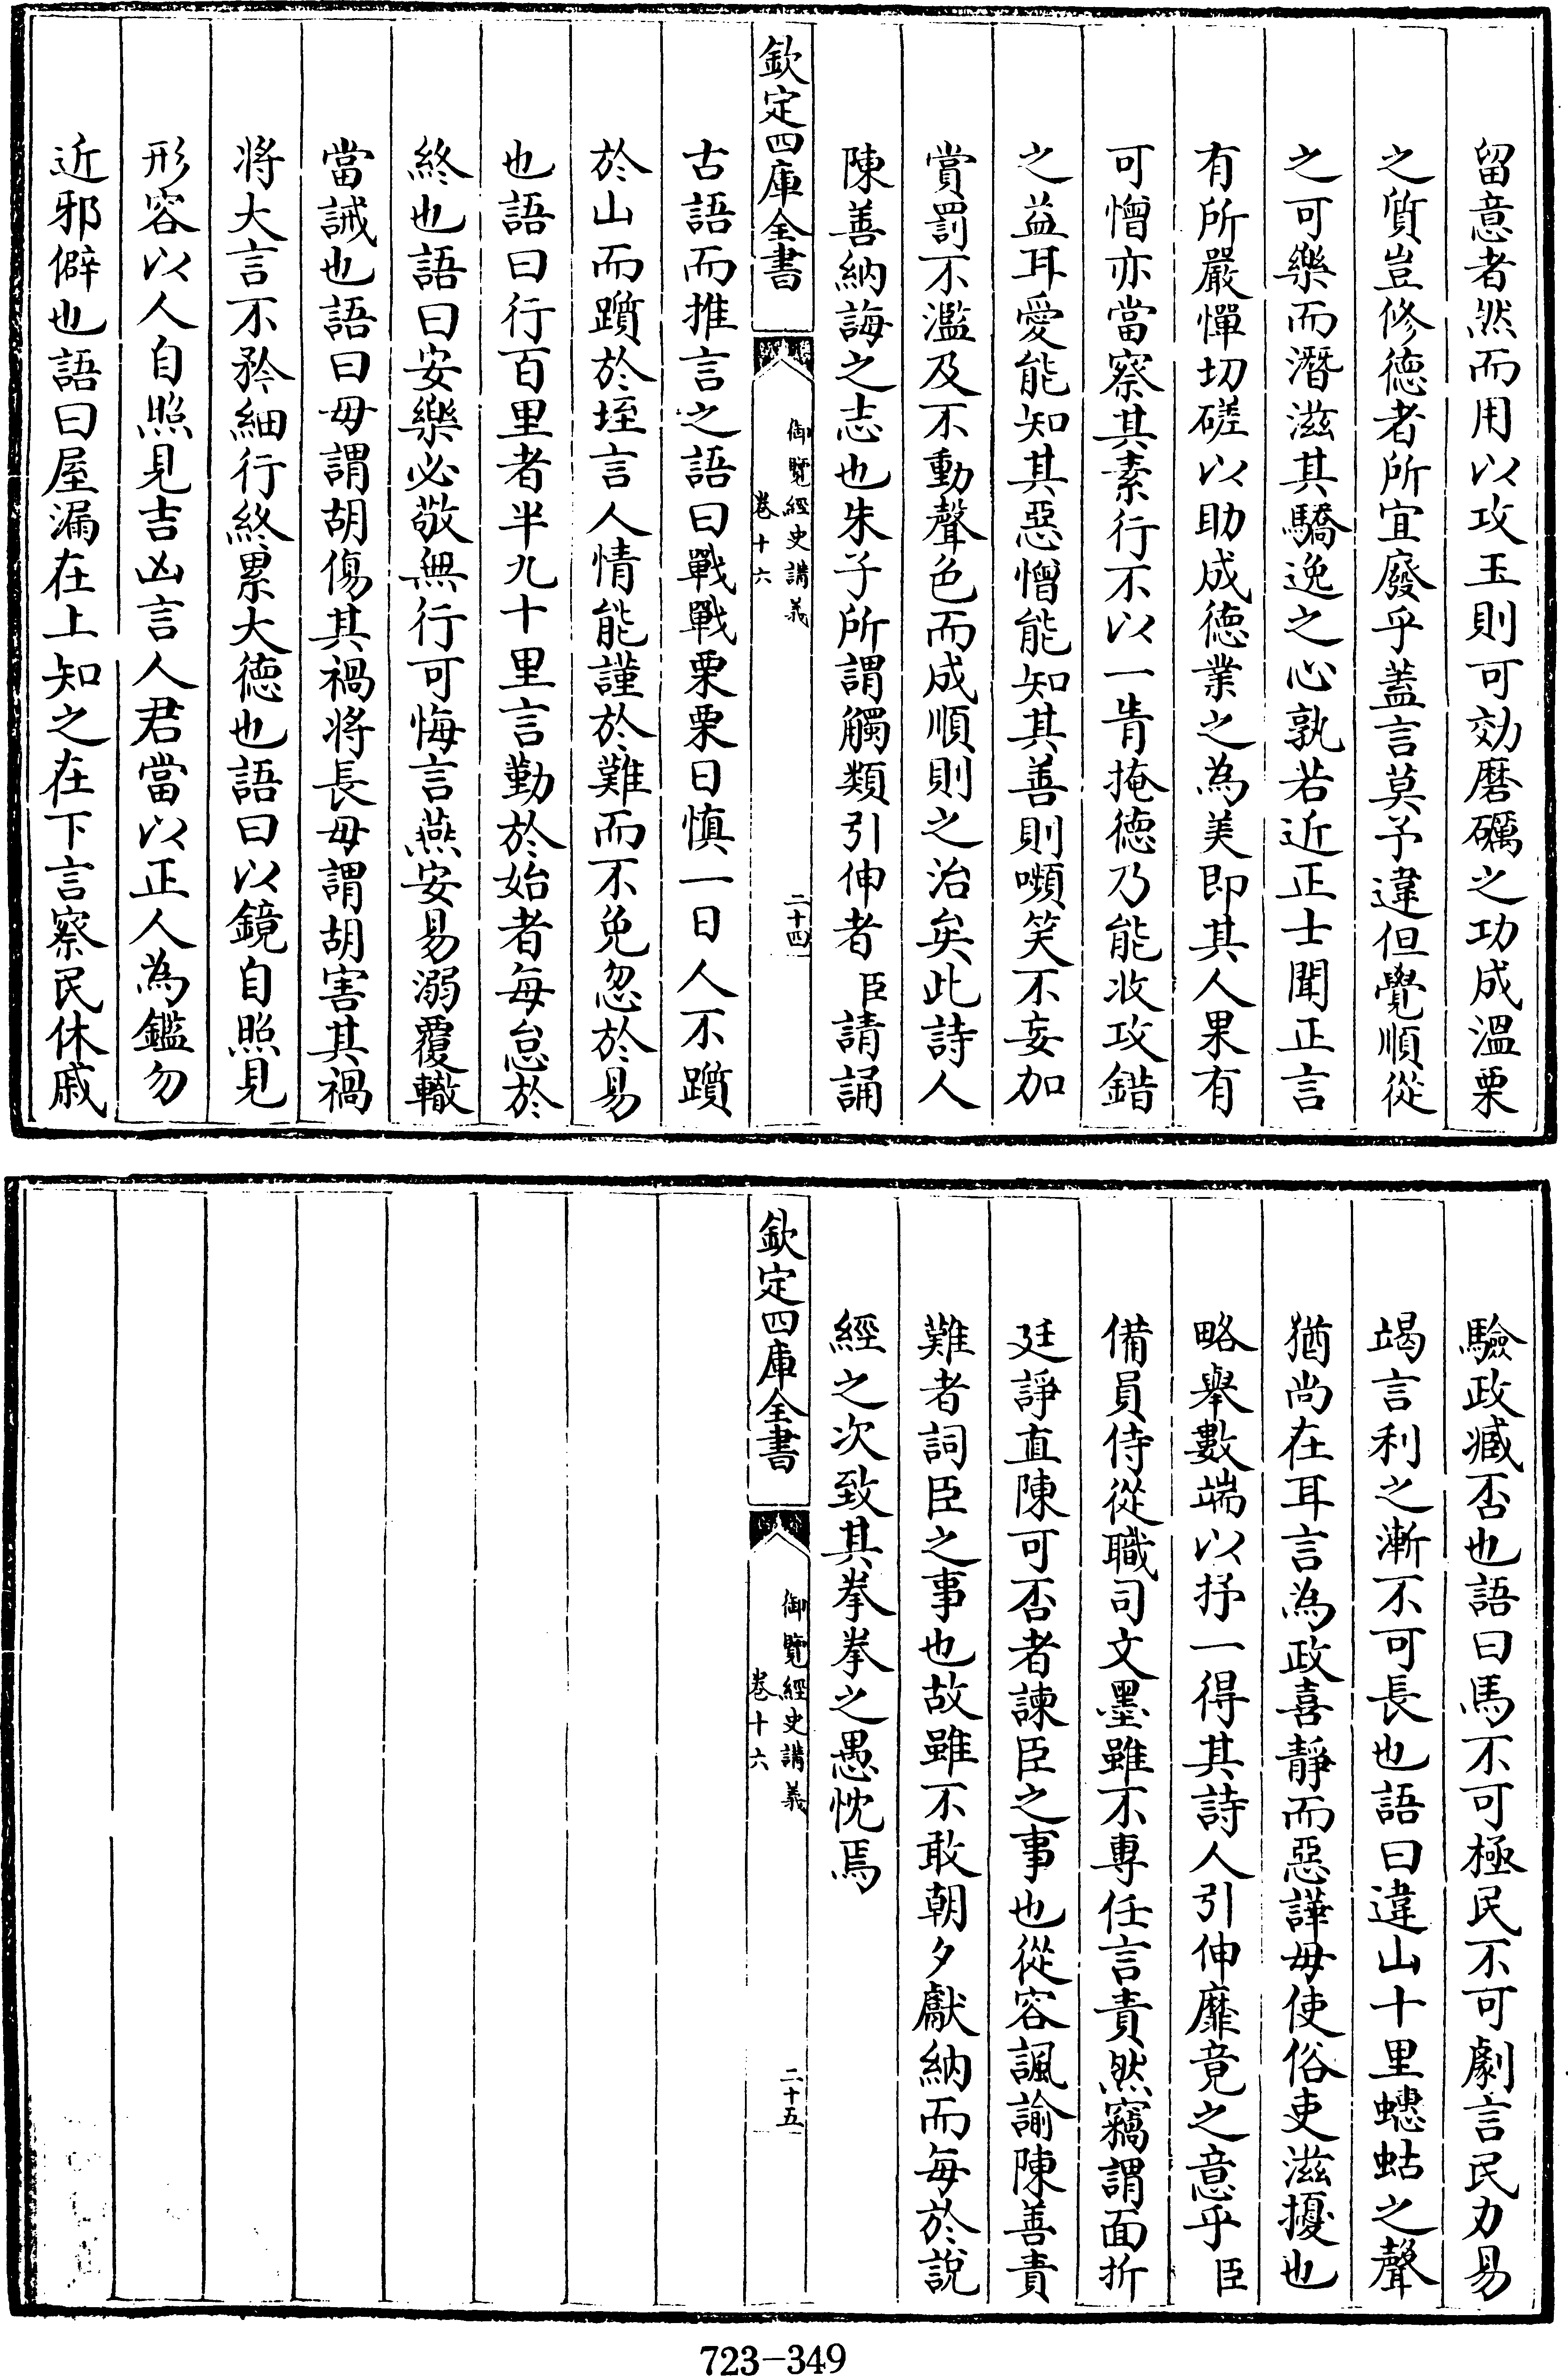 留意者然而用以攻玉則可効磨礪之功成溫栗
之質豈修徳者所宜廢乎蓋言莫予違但覺順從
之可樂而潛滋其驕逸之心孰若近正士聞正言
有所嚴憚切磋以助成徳業之為美即其人果有
可憎亦當察其素行不以一眚掩徳乃能收攻錯
之益耳愛能知其惡憎能知其善則嚬笑不妄加
賞罰不濫及不動聲色而成順則之治矣此詩人
陳善納誨之志也朱子所謂觸類引伸者臣請誦
欽定四庫全書
御覽經史講義
卷十六
二十四
古語而推言之語曰戰戰栗栗日慎一日人不躓
於山而躓於垤言人情能謹於難而不免忽於易
也語曰行百里者半九十里言勤於始者每怠於
終也語曰安樂必敬無行可悔言燕安易溺覆轍
當誡也語曰毋謂胡傷其禍将長毋謂胡害其禍
将大言不矜細行終累大徳也語曰以鏡自照見
形容以人自照見吉凶言人君當以正人為鑑勿
近邪僻也語曰屋漏在上知之在下言察民休戚
驗政臧否也語曰馬不可極民不可劇言民力易
竭言利之漸不可長也語曰違山十里蟪蛄之聲
猶尚在耳言為政喜靜而惡譁毋使俗吏滋擾也
略舉數端以抒一得其詩人引伸靡竟之意乎臣
備員侍從職司文墨雖不專任言責然竊謂面折
廷諍直陳可否者諫臣之事也從容諷諭陳善責
難者詞臣之事也故雖不敢朝夕獻納而每於說
經之次致其拳拳之愚忱焉
欽定四庫全書
御覽經史講義
卷十六
二十五
723-349